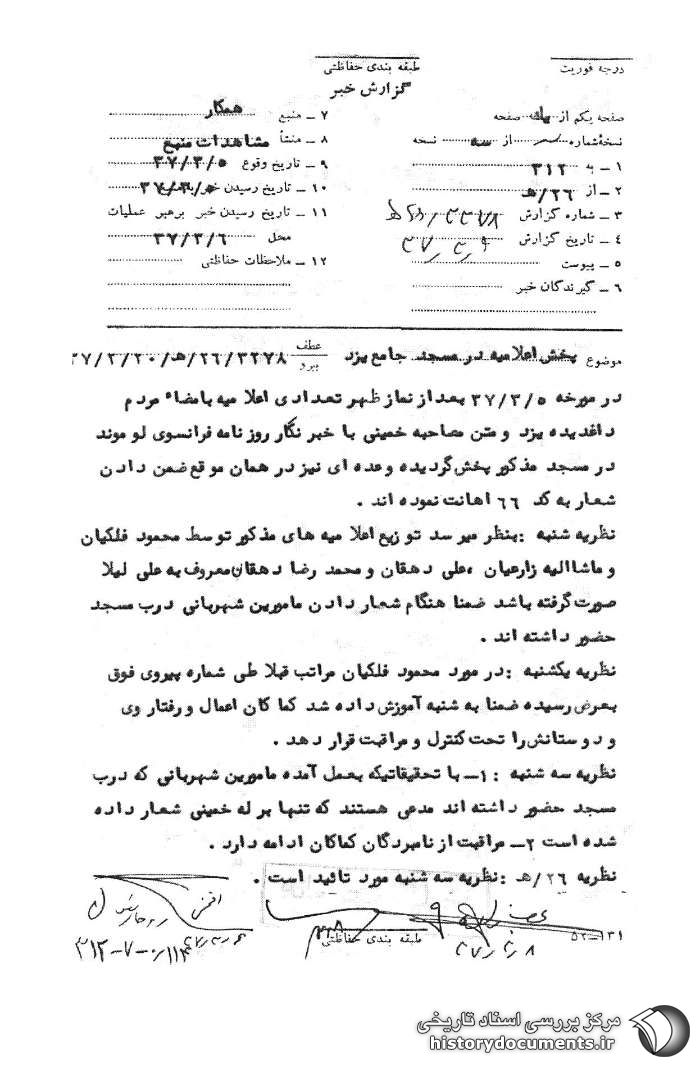 درجه فوریت
طبقه بندی حفاظتی
گزارش خبر
صفحه یکم از یک صفحه
نسخهٔ شماره از سه نسخه
۱ ــ به ۳۱۲
۲ ــ از ۲۶/هـ
۳ ــ شماره گزارش
۴ ــ تاریخ گزارش
۵ ــ پیوست
۶ ــ گیرندگان خبر
۷ ــ منبع همکار
۸ ــ منشأ مشاهدات منبع
۹ ــ تاریخ وقوع ۳۷/۳/۵
۱۰ ــ تاریخ رسیدن خبر به منبع ۳۷/۳/۵
۱۱ ــ تاریخ رسیدن خبر برهبر عملیات
محل ۳۷/۳/۶
۱۲ ــ ملاحظات حفاظتی
موضوع پخش اعلامیه در مسجد جامع یزد عطف پیرو ۲۶/۳۲۷۸/هـ/۳۷/۲/۲۰
در مورخه ۳۷/۳/۵ بعد از نماز ظهر تعدادی اعلامیه بامضاء مردم
داغدیده یزد و متن مصاحبه خمینی با خبر نگار روزنامه فرانسوی لوموند
در مسجد مذکور پخش گردیده و عده ای نیز در همان موقع ضمن دادن
شعار به کد ۶۶ اهانت نموده اند .
نظریه شنبه : بنظر میرسد توزیع اعلامیه های مذکور توسط محمود فلکیان
و ماشاالیه زارعیان ، علی دهقان و محمد رضا دهقان معروف به علی لیلا
صورت گرفته باشد ضمنا هنگام شعار دادن مامورین شهربانی درب مسجد
حضور داشته اند .
نظریه یکشنبه : در مورد محمود فلکیان مراتب قبلا طی شماره پیروی فوق
بعرض رسیده ضمنا به شنبه آموزش داده شد کماکان اعمال و رفتار وی
و دوستانش را تحت کنترل و مراقبت قرار دهد .
نظریه سه شنبه : ۱ــ با تحقیقاتیکه بعمل آمده مامورین شهربانی که درب
مسجد حضور داشته اند مدعی هستند که تنها بر له خمینی شعار داده
شده است ۲ــ مراقبت از نامبردگان کماکان ادامه دارد .
نظریه ۲۶/هـ : نظریه سه شنبه مورد تائید است .
طبقه بندی حفاظتی
۵۲ــ۱۳۱
مرکز بررسی اسناد تاریخی
historydocuments.ir